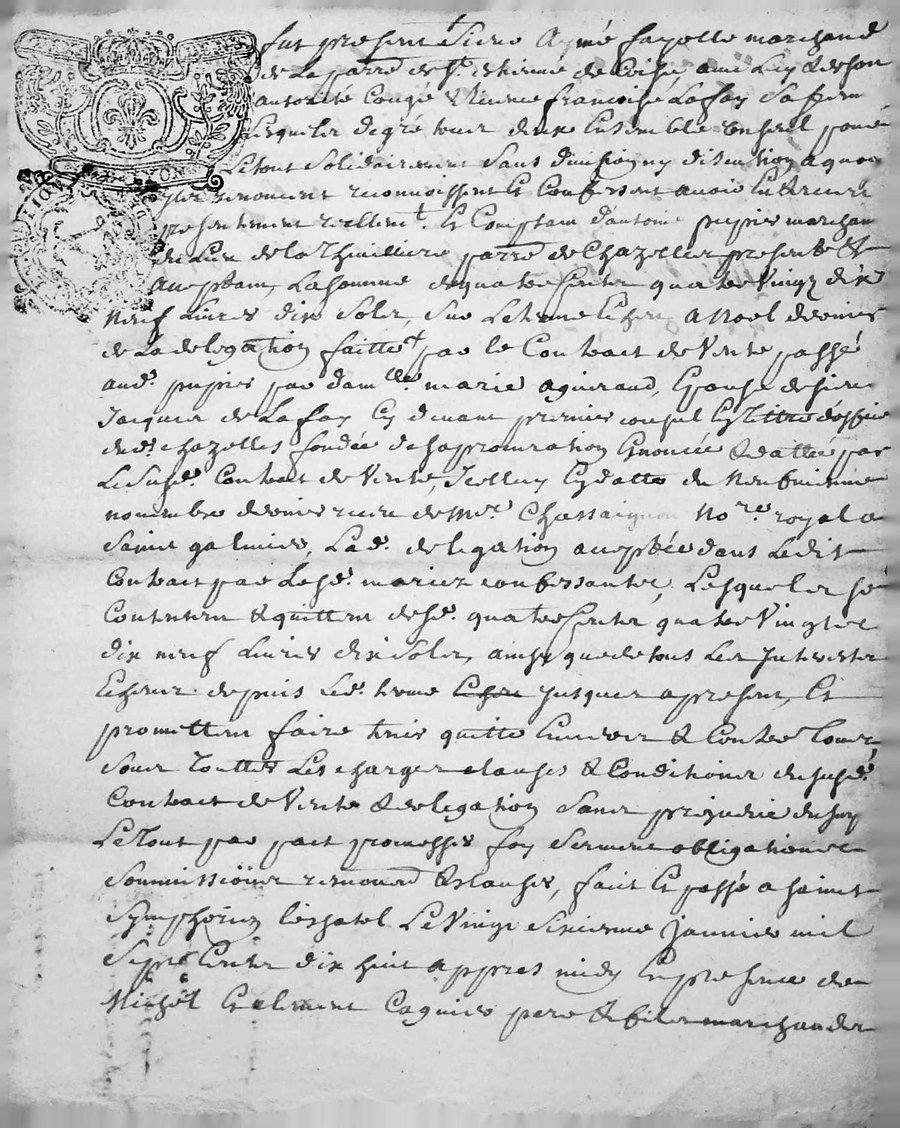 fut present Sieur Aymé fayolle marchand
de La parr.e de S.t Estienne de Coise, avec luy & de son
autorité Congé & licence francoise Lafay sa fem
Lesquels de gré tous deux Ensemble un seul pour
Le tout Solidairement Sans division ny discution a quoy
ils renoncent reconnoissent Et Confessent avoir Eu & receu
presentement reellem.t Et Comptant d'antoine pupier marchan
du Lieu de la Thuilliere parr.e de Chazelles present &
acceptant, La somme de quatre Cents quatre Vingt dix
neuf Livres dix Sols, Sur Le terme Echeu a Noel dernier
de La delegation faitte par le Contrait de Vente passé
aud. pupier par dam.lle marie aguiraud, Epouse de sieur
Jacques de Lafay Cy devant premier consul En Titre d'office
dud. chazelles fondée de sa procuration Enoncée & dattée par
Le Susd. Contrait de Vente, Icelluy Cy datté du Neufvieme
novembre dernier receu de M.e Chassaignon No.re royal a
Saint galmier, La d. delegation acceptée dans Le dit
Contrait par Les d. mariez confessants, Lesquels se
Contentent & quittent desd. quatre Cents quatre Vingts
dix neuf Livres dix Sols, ainsy que de tous Les Interests
Echeus depuis Led. terme Jusques a present, Et
promettent faire tenir quitte Envers & Contre Tous
Sous Touttes Les charges clauses & Conditions du susd.
Contrait de Vente & delegation Sans prejudice du surp
Le Tout par pait promesses foy Serment obligations
Sommissions renonc.on & clauses, fait Et passé a saint
Symphorien le chatel Le Vingt Sixieme Janvier mil
Sept Cents dix huit appres midy En presence de
Michel Et Clement Caguier pere & fils marchands